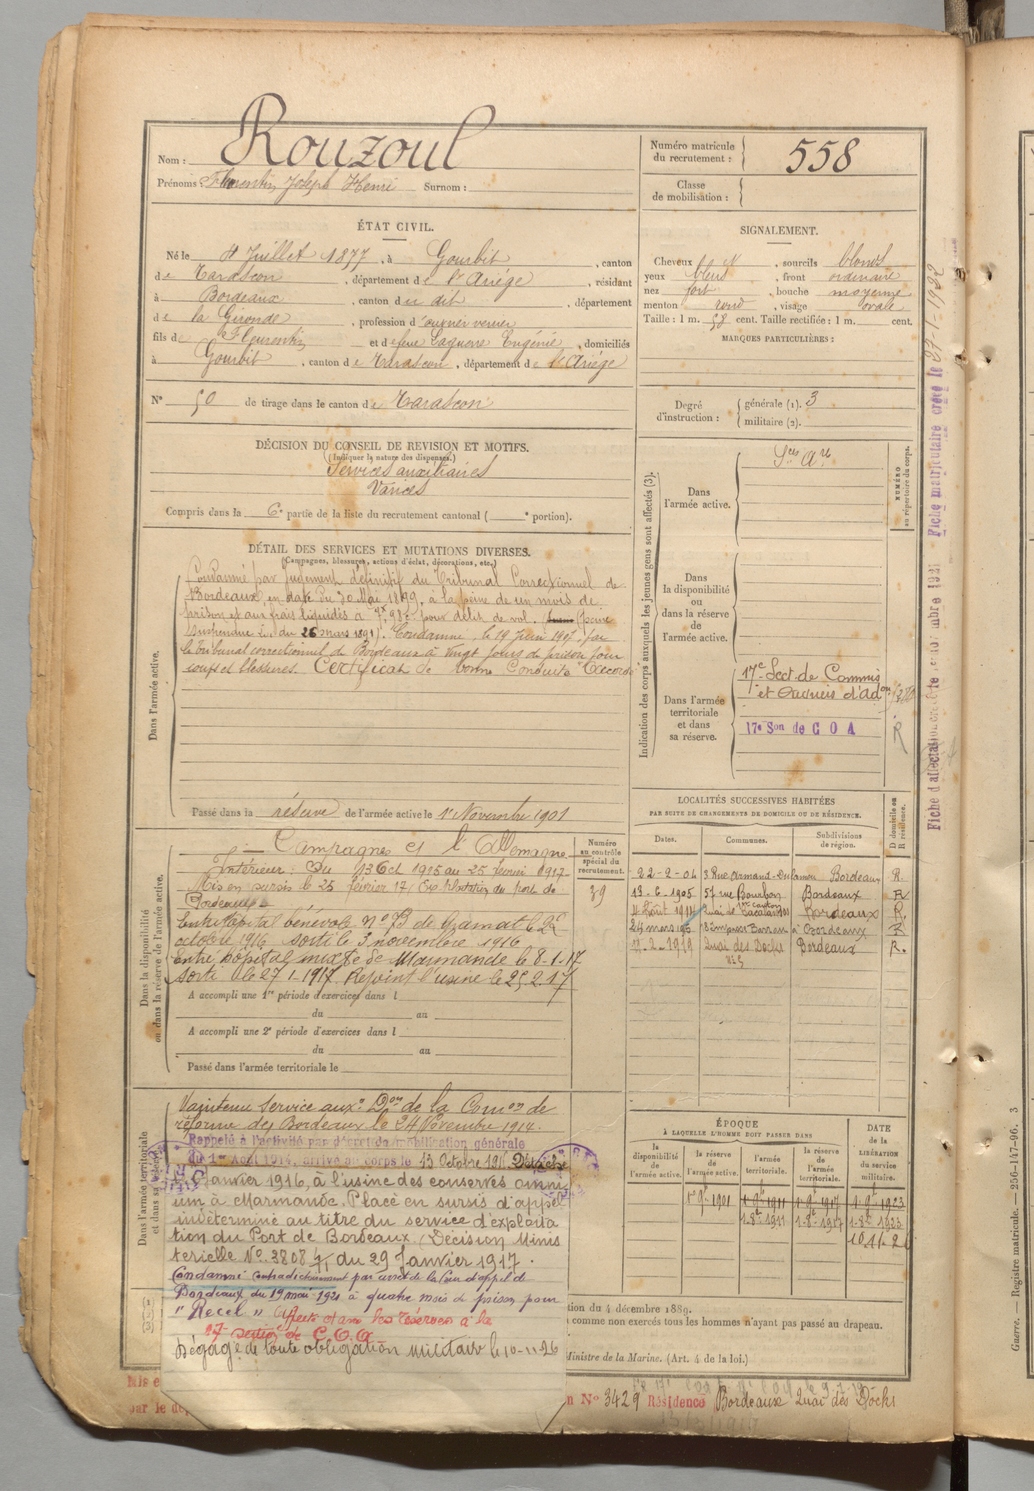 Nom : Rouzoul
Prénoms : Florentin Joseph Henri Surnom :
Numéro matricule du recrutement : 558
Classe de mobilisation :
ÉTAT CIVIL.
Né le 4 Juillet 1877, à Gourbit, canton
de Tarascon, département de l'Ariège, résidant
à Bordeaux, canton du dit, département
de la Gironde, profession d'ouvrier verrier
fils de Florentin et de feue Laguerre Eugénie, domiciliés
à Gourbit, canton de Tarascon, département de l'Ariège
N° 50 de tirage dans le canton de Tarascon
SIGNALEMENT.
Cheveux N, sourcils blonds
yeux bleus, front ordinaire
nez fort, bouche moyenne
menton rond, visage ovale
Taille : 1 m. 58 cent. Taille rectifiée : 1 m. cent.
MARQUES PARTICULIÈRES :
Degré d'instruction : générale (1). 3
militaire (2).
DÉCISION DU CONSEIL DE REVISION ET MOTIFS.
(Indiquer la nature des dispenses.)
Services auxiliaires
Varices
Compris dans la 6e partie de la liste du recrutement cantonal ( e portion).
DÉTAIL DES SERVICES ET MUTATIONS DIVERSES.
(Campagnes, blessures, actions d'éclat, décorations, etc.)
Dans l'armée active.
Condamné par jugement définitif du Tribunal Correctionnel de
Bordeaux, en date du 20 Mai 1899, à la peine de un mois de
prison et aux frais liquidés à pour délit de vol. (peine
suspendue Loi du 26 mars 1891). Condamné, le 19 Juin 1907, par
le tribunal correctionnel de Bordeaux à vingt jours de prison pour
coups et blessures. Certificat de bonne Conduite "Accordé"
Passé dans la réserve de l'armée active le 1er Novembre 1901
Indication des corps auxquels les jeunes gens sont affectés (3).
NUMÉRO au répertoire du corps.
Dans l'armée active.
Ces Are
Dans la disponibilité ou dans la réserve de l'armée active.
Dans l'armée territoriale et dans sa réserve.
17e Sect de Commis
et Ouvriers d'Adon
17e Son de C O A
R
Fiche matriculaire créée le 27-1-1922
Dans la disponibilité ou dans la réserve de l'armée active.
Campagnes et l'Allemagne
Intérieur : Du 13 Oct 1915 au 25 février 1917
Mis en sursis le 25 février 17 Exploitation du port de
Bordeaux
Entré hôpital bénévole N° 73 de Gramat le 2
octobre 1916 sorti le 5 novembre 1916
Entré hôpital mixte de Marmande le 8-1-17
Sorti le 27-1-1917 Rejoint l'usine le 25.2.17
A accompli une 1re période d'exercices dans l
du au
A accompli une 2e période d'exercices dans l
du au
Passé dans l'armée territoriale le
Numéro au contrôle spécial du recrutement.
39
LOCALITÉS SUCCESSIVES HABITÉES
PAR SUITE DE CHANGEMENTS DE DOMICILE OU DE RÉSIDENCE.
Dates. Communes. Subdivisions de région. D domicile ou R résidence.
22-2-04 3 Rue Armand-Dulamon Bordeaux R
13-6-1905 57 rue Bourbon Bordeaux R
4 Août 1914 quai de Bacalan Bordeaux R.
24 mars 8 Impasse Barreau à Bordeaux R
7-2-1919 Quai des Docks Bordeaux R.
Dans l'armée territoriale et dans sa réserve.
Maintenu service auxre Don de la Comon de
réforme de Bordeaux le 24 Novembre 1914.
Rappelé à l'activité par décret de mobilisation générale
du 1er Août 1914, arrivé au corps le 13 Octobre 191 Détaché
Janvier 1916, à l'usine des conserves
à Marmande. Placé en sursis d'appel
indéterminé au titre du service d'exploita
tion du Port de Bordeaux. (Décision Minis
terielle N° 3808 du 29 Janvier 1917.
Condamné contradictoirement par arrêt de la Cour d'appel de
Bordeaux du 19 mai 1921 à quatre mois de prison pour
"Recel" Affecté dans les réserves à la
17e section de C.O.A.
Dégagé de toute obligation militaire le 10-11-26
ÉPOQUE
À LAQUELLE L'HOMME DOIT PASSER DANS
la disponibilité de l'armée active. la réserve de l'armée active. l'armée territoriale. la réserve de l'armée territoriale. DATE de la LIBÉRATION du service militaire.
1er 9bre 1901 1er 9bre 1911 1er 9bre 1917 1er 9bre 1923
1.8bre 1911 1.8bre 1917 1.8bre 1923
10.11.26
tion du 4 décembre 1889.
comme non exercés tous les hommes n'ayant pas passé au drapeau.
Ministre de la Marine. (Art. 4 de la loi.)
Mis e
par le dé
n N° 3429 Résidence Bordeaux Quai des Docks
Guerre. — Registre matricule. — 256-147-96. 3